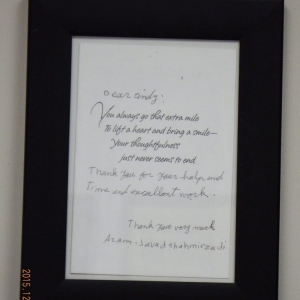 Dear Cindy;
You always go that extra mile
To lift a heart and bring a smile—
Your thoughtfulness
just never seems to end
Thank you for your help, and
Time and excellent work.
Thank you very much
Azam, Javad
2015.12